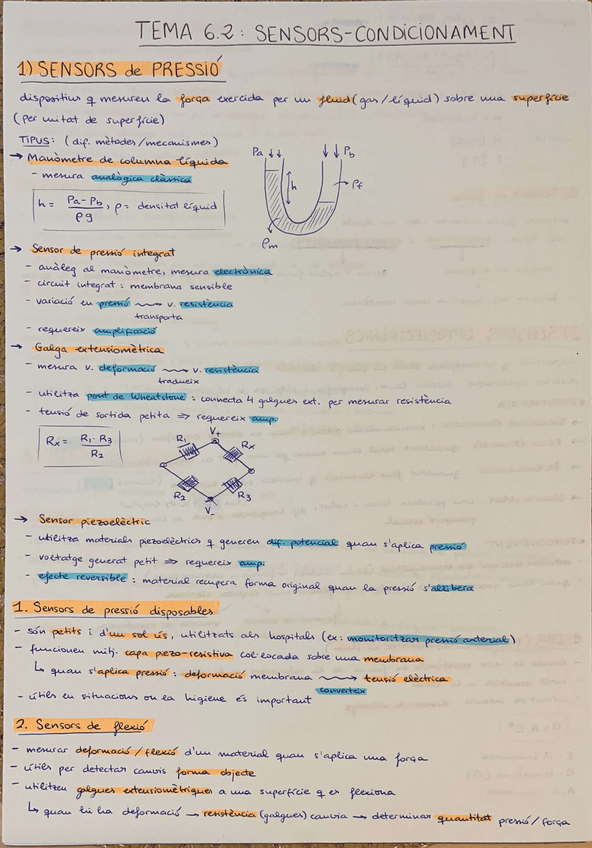 TEMA 6.2: SENSORS-CONDICIONAMENT
1) SENSORS de PRESSIÓ
dispositius q mesuren la força exercida per un fluid (gas/líquid) sobre una superfície
(per unitat de superfície)
TIPUS: (dif. mètodes/mecanismes)
→ Manòmetre de columna líquida
- mesura analògica clàssica
h = Pa - Pb / ρg, ρ = densitat líquid
Pa ↓↓ ↓↓ Pb
h
ρf
ρm
→ Sensor de pressió integrat
- anàleg al manòmetre, mesura electrònica
- circuit integrat: membrana sensible
- variació en pressió ⟿ v. resistència
transporta
- requereix amplificació
→ Galga extensiomètrica
- mesura v. deformació ⟿ v. resistència
tradueix
- utilitza pont de Wheatstone: connecta 4 galgues ext. per mesurar resistència
- tensió de sortida petita ⇒ requereix amp.
Rx = R1 · R3 / R2
V+
R1 Rx
R2 R3
V-
→ Sensor piezoelèctric
- utilitza materials piezoelèctrics q generen dif. potencial quan s'aplica pressió
- voltatge generat petit ⇒ requereix amp.
- efecte reversible: material recupera forma original quan la pressió s'allibera
1. Sensors de pressió disposables
- són petits i d'un sol ús, utilitzats als hospitals (ex: monitoritzar pressió arterial)
- funcionen mitj. capa piezo-resistiva col·locada sobre una membrana
↳ quan s'aplica pressió: deformació membrana ⟿ tensió elèctrica
converteix
- útils en situacions on la higiene és important
2. Sensors de flexió
- mesurar deformació / flexió d'un material quan s'aplica una força
- útils per detectar canvis forma objecte
- utilitzen galgues extensiomètriques a una superfície q es flexiona
↳ quan hi ha deformació → resistència (galgues) canvia → determinar quantitat pressió/força